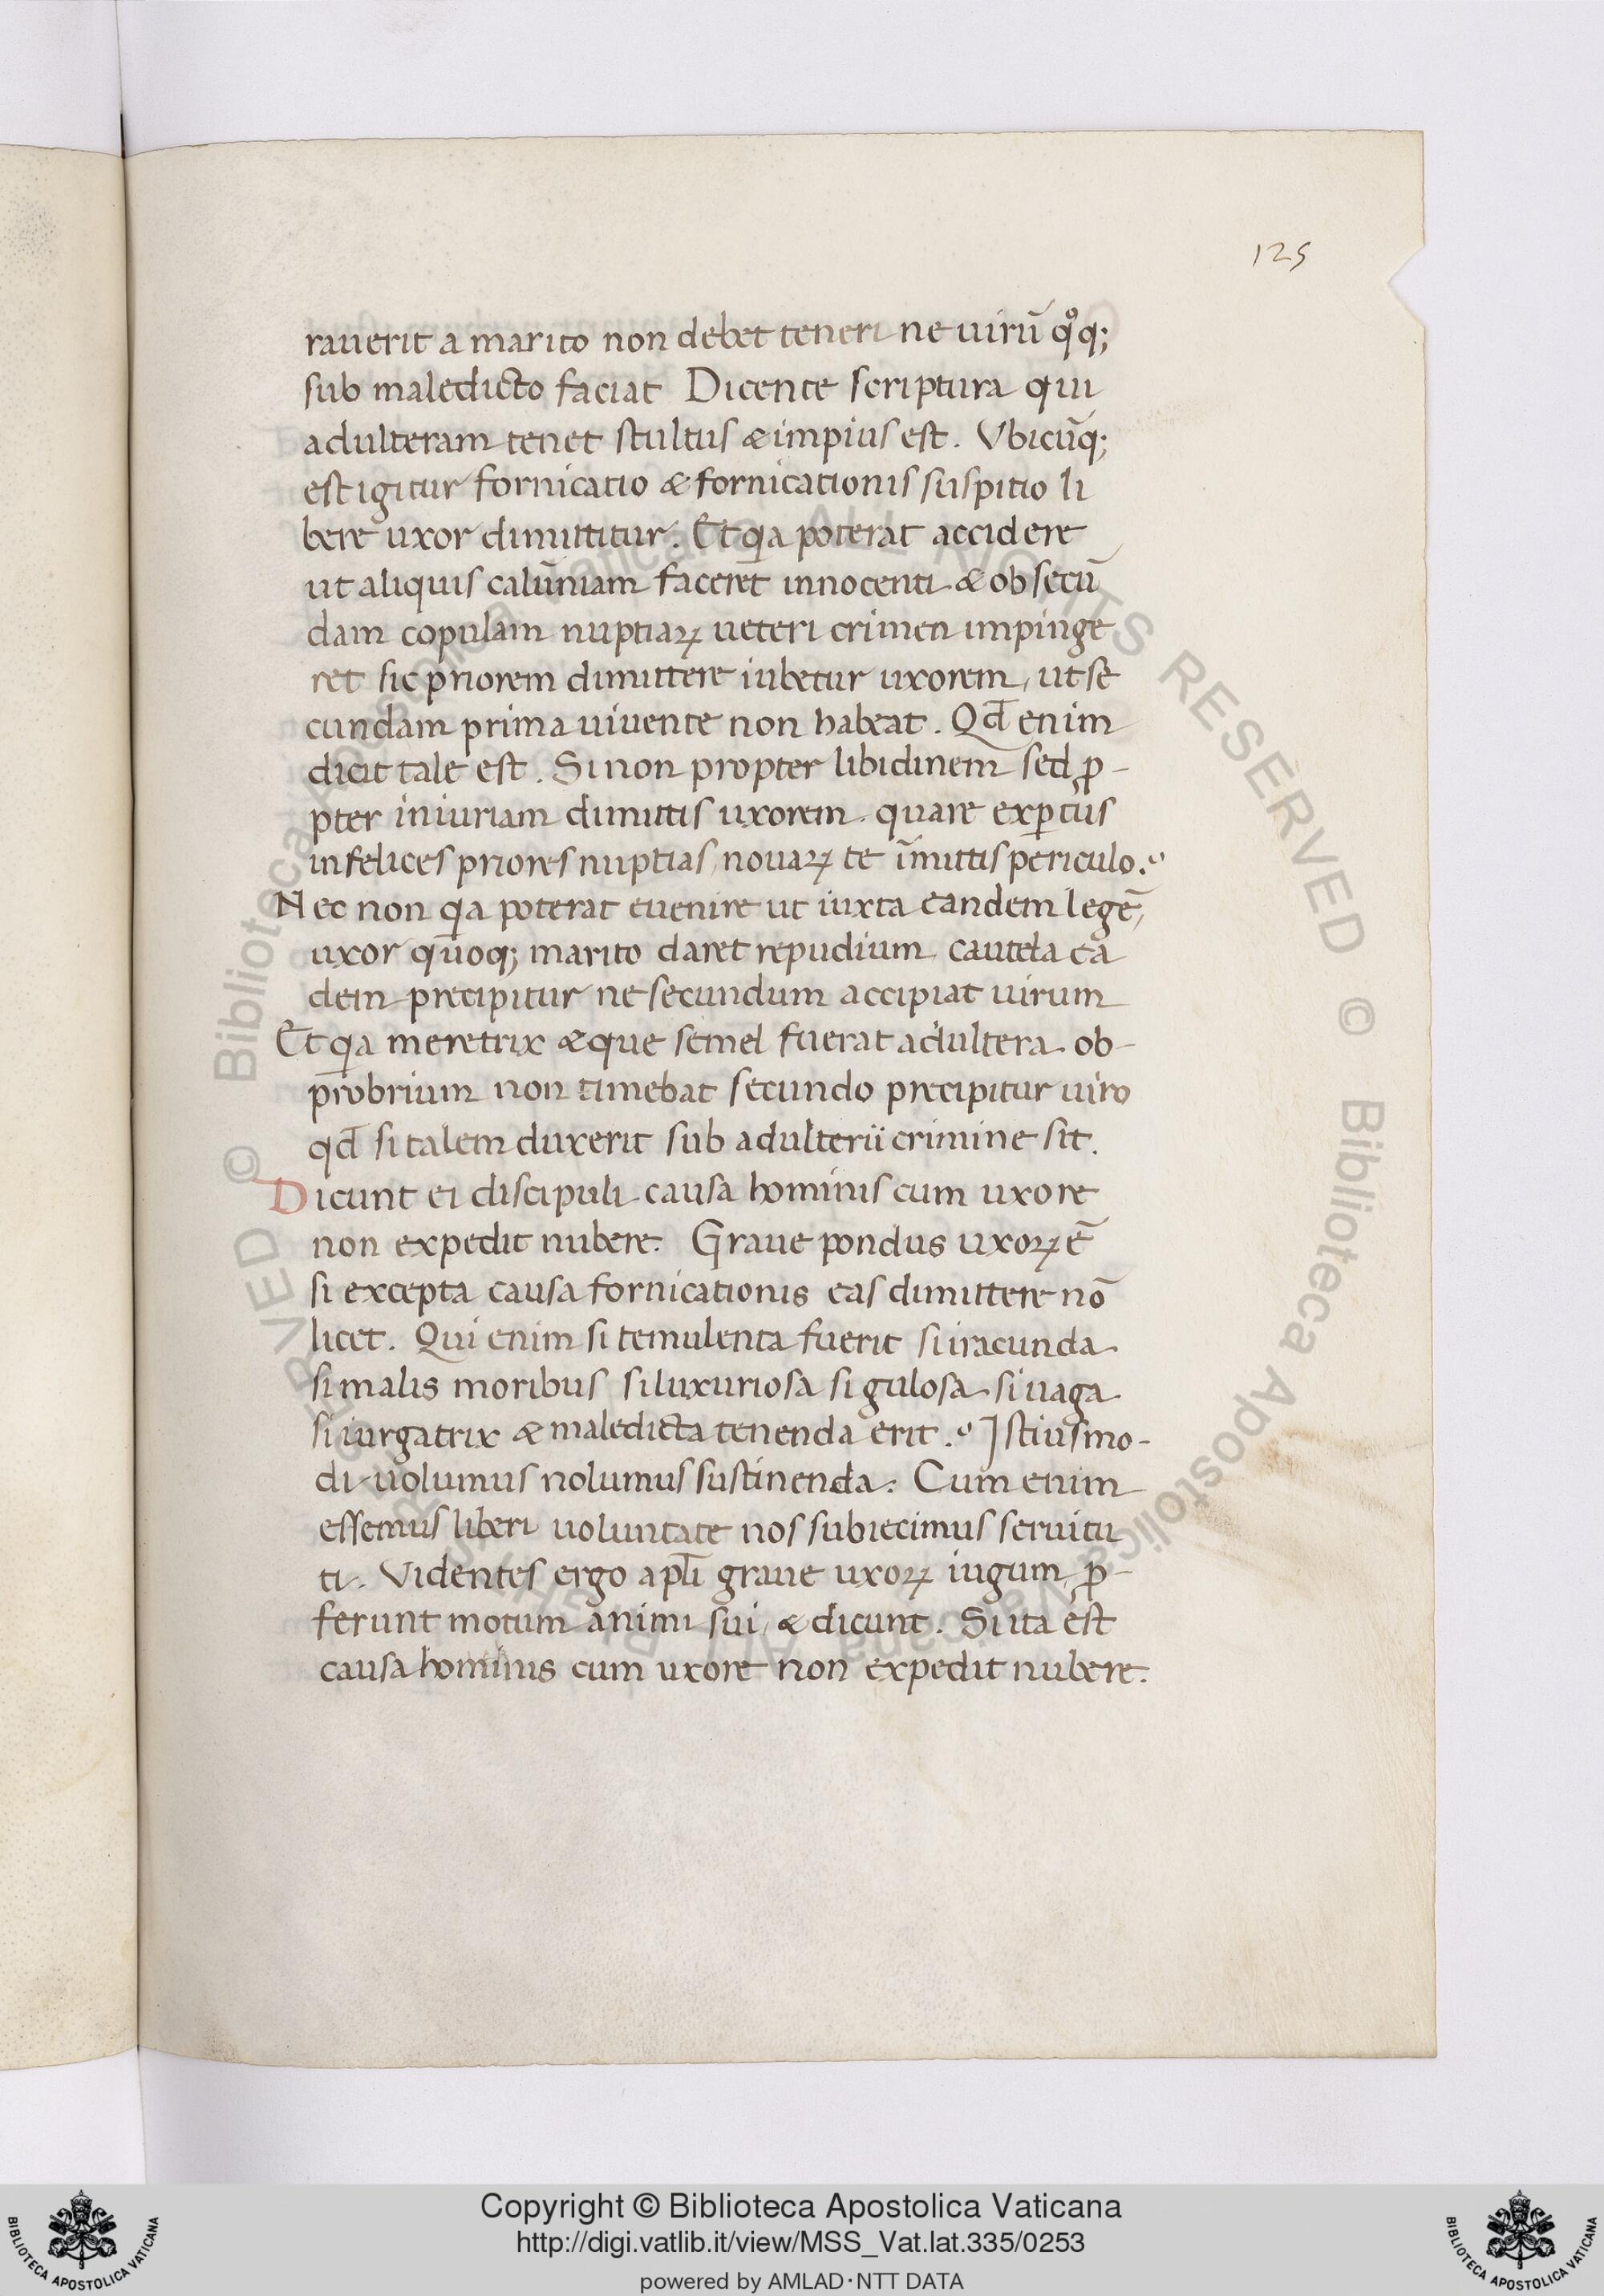 125
rauerit a marito non debet teneri ne uirũ qͦq;
sub maledicto faciat Dicente scriptura qui
adulteram tenet stultus & impius est. Vbicũq;
est igitur fornicatio & fornicationis suspitio li
bere uxor dimittitur. Et qa poterat accidere
ut aliquis calũniam faceret innocenti & ob secũ
dam copulam nuptiaꝝ ueteri crimen impinge
ret sic priorem dimittere iubetur uxorem, ut se
cundam prima uiuente non habeat. Qd̄ enim
dicit tale est. Si non propter libidinem sed ꝓ-
pter iniuriam dimittis uxorem. quare exꝑtus
infelices priores nuptias, nouaꝝ te ĩmittis periculo.?
Nec non qa poterat euenire ut iuxta eandem legẽ,
uxor quoq; marito daret repudium, cautela ea
dem precipitur ne secundum accipiat uirum
Et qa meretrix & que semel fuerat adultera ob-
probrium non timebat secundo precipitur uiro
qd̄ si talem duxerit sub adulterii crimine sit.
Dicunt ei discipuli causa hominis cum uxore
non expedit nubere. Graue pondus uxoꝝ ẽ
si excepta causa fornicationis eas dimittere nõ
licet. Qui enim si temulenta fuerit si iracunda
si malis moribus si luxuriosa si gulosa si uaga
si iurgatrix & maledicta tenenda erit.? Istiusmo-
di uolumus nolumus sustinenda. Cum enim
essemus liberi uoluntate nos subiecimus seruitu
ti. Videntes ergo apl̄i graue uxoꝝ iugum ꝓ-
ferunt motum animi sui, & dicunt. Si ita est
causa hominis cum uxore non expedit nubere.
© Biblioteca Apostolica Vaticana ALL RIGHTS RESERVED © Biblioteca Apostolica Vaticana ALL RIGHTS RESERVED
Copyright © Biblioteca Apostolica Vaticana
http://digi.vatlib.it/view/MSS_Vat.lat.335/0253
powered by AMLAD·NTT DATA
BIBLIOTECA APOSTOLICA VATICANA
BIBLIOTECA APOSTOLICA VATICANA